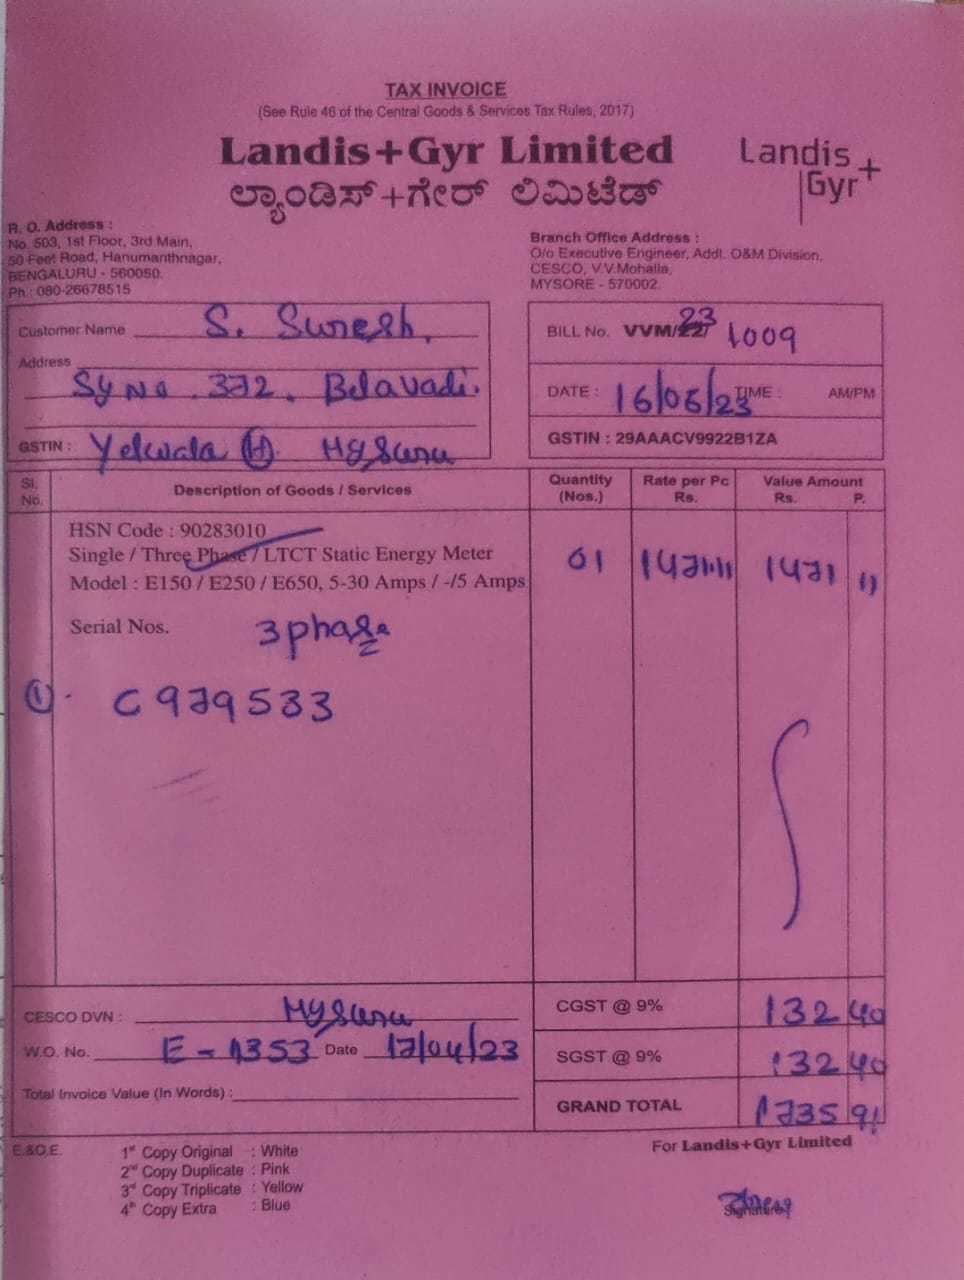 TAX INVOICE
(See Rule 46 of the Central Goods & Services Tax Rules, 2017)
Landis+Gyr Limited
ಲ್ಯಾಂಡಿಸ್+ಗೇರ್ ಲಿಮಿಟೆಡ್
Landis
Gyr+
R. O. Address :
No. 503, 1st Floor, 3rd Main,
50 Feet Road, Hanumanthnagar,
BENGALURU - 560050.
Ph.: 080-26678515
Branch Office Address :
O/o Executive Engineer, Addl. O&M Division,
CESCO, V.V.Mohalla,
MYSORE - 570002.
Customer Name S. Suresh,
Address
Sy No. 372. Belavadi.
GSTIN : Yelwala (H). Mysuru
BILL No. VVM/23/ 1009
DATE : 16/06/23 TIME : AM/PM
GSTIN : 29AAACV9922B1ZA
Sl. No. Description of Goods / Services Quantity (Nos.) Rate per Pc Rs. Value Amount Rs. P.
HSN Code : 90283010
Single / Three Phase / LTCT Static Energy Meter 01 1471.11 1471 11
Model : E150 / E250 / E650, 5-30 Amps / -/5 Amps
Serial Nos. 3 phase
1. C979533
CESCO DVN : Mysuru
W.O. No. E-1353 Date 17/04/23
Total Invoice Value (In Words) :
CGST @ 9% 132 40
SGST @ 9% 132 40
GRAND TOTAL 1735 91
E.&O.E.
1st Copy Original : White
2nd Copy Duplicate : Pink
3rd Copy Triplicate : Yellow
4th Copy Extra : Blue
For Landis+Gyr Limited
Signature